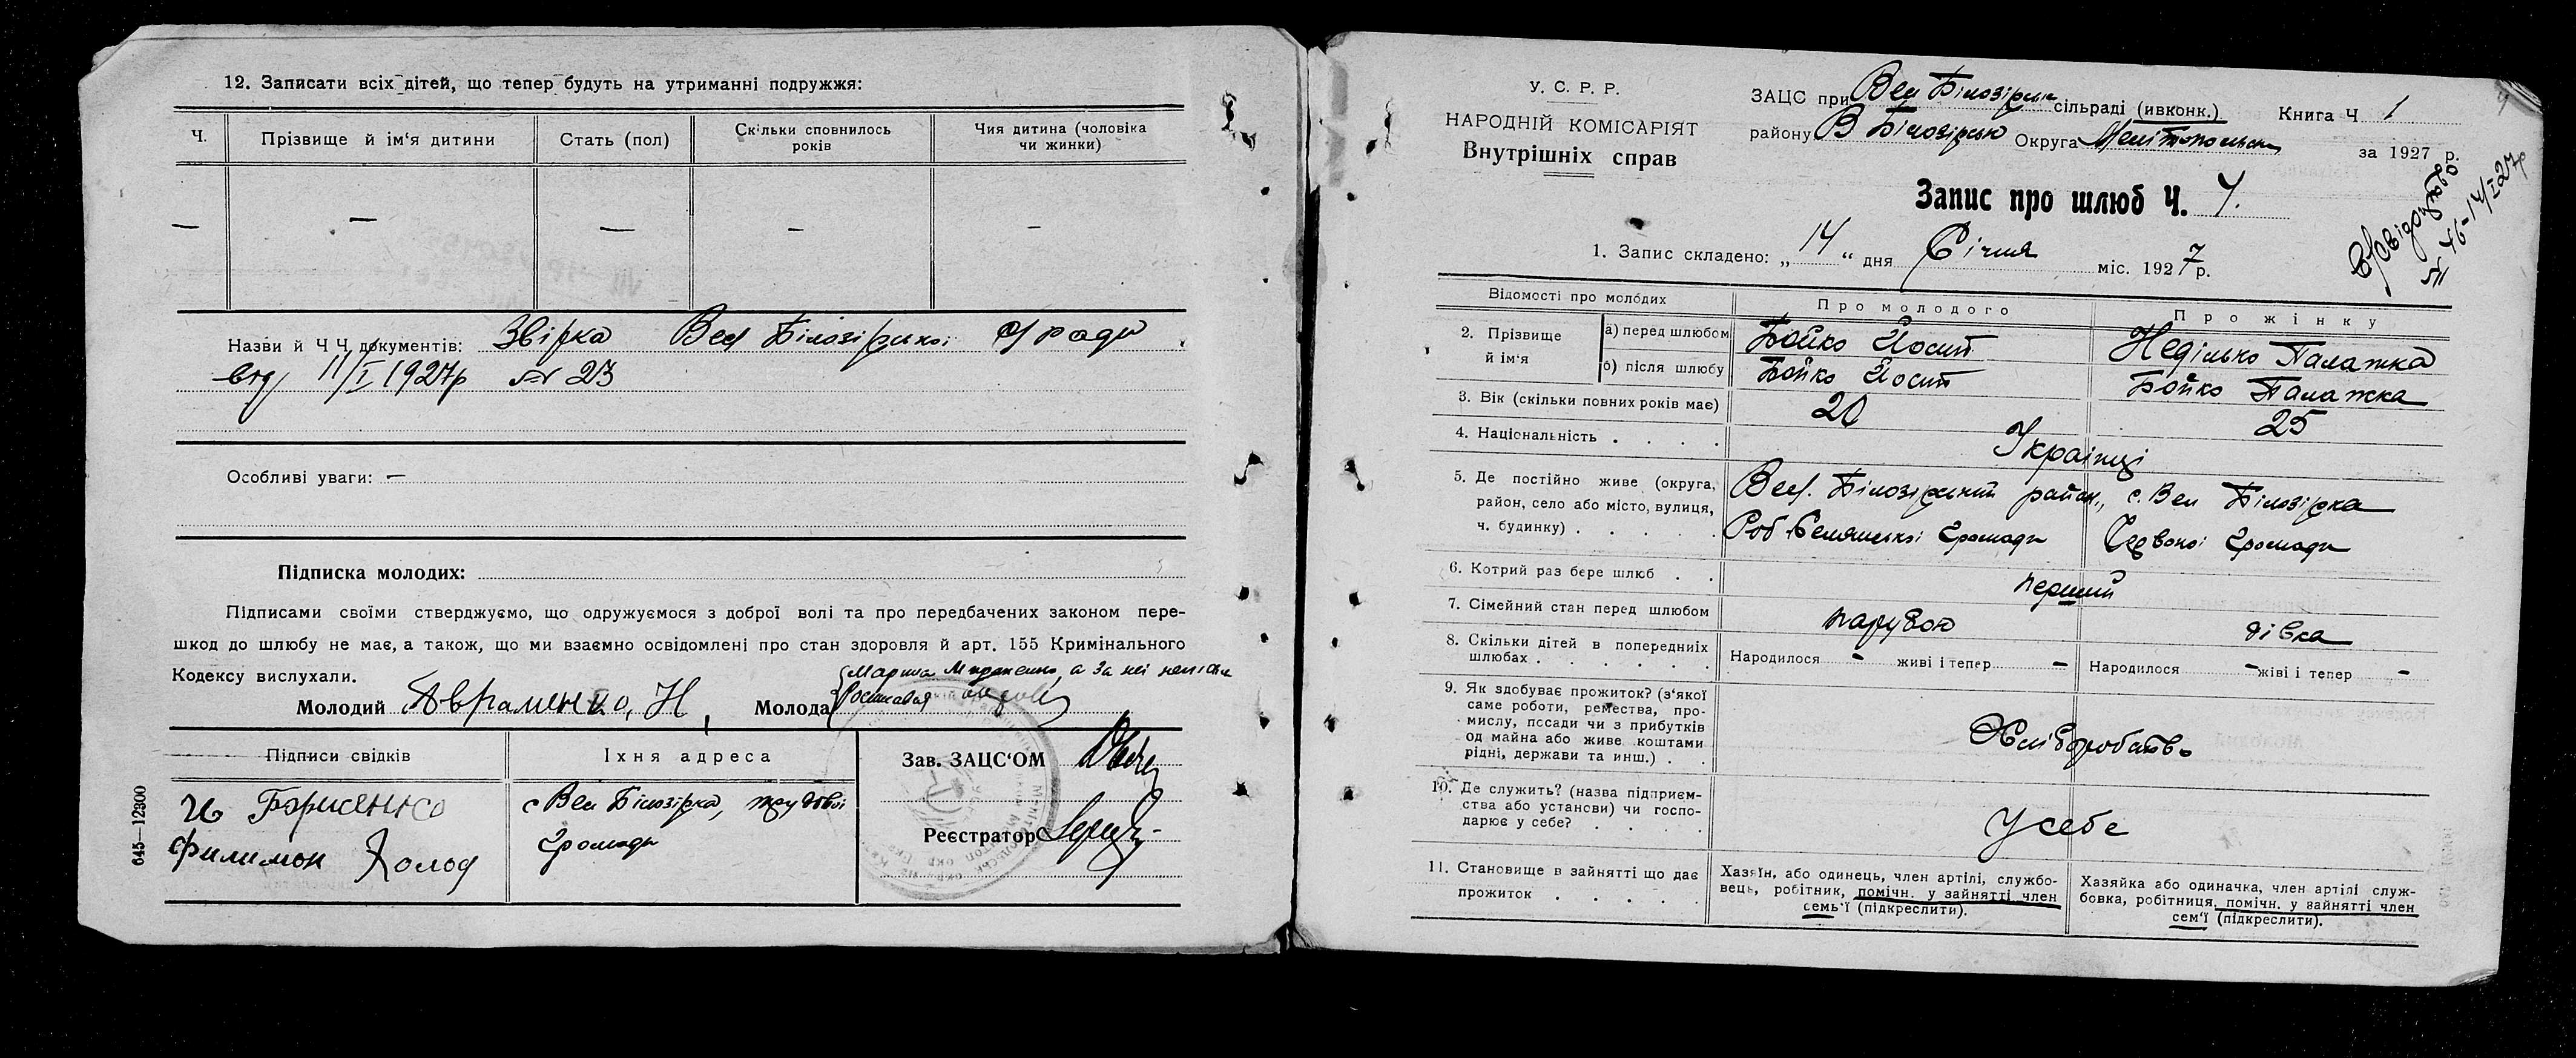 12. Записати всіх дітей, що тепер будуть на утриманні подружжя:
Ч. Прізвище й ім‘я дитини Стать (пол) Скільки сповнилось років Чия дитина (чоловіка чи жинки)
— — — — —
Назви й Ч Ч документів: Звірка Вел Білозірської с/ ради
від 11/I 1927р № 23
Особливі уваги: —
Підписка молодих:
Підписами своїми стверджуємо, що одружуємося з доброї волі та про передбачених законом пере-
шкод до шлюбу не має, а також, що ми взаємно освідомлені про стан здоров‘я й арт. 155 Кримінального
Кодексу вислухали.
Марина а за неї
Молодий Авраменко, Н, Молода
Підписи свідків Їхня адреса
Зав. ЗАЦС‘ОМ
с Вел Білозірка, трудової
громади
Филимон Холод
Реєстратор
645—12300
У. С. Р. Р.
НАРОДНІЙ КОМІСАРІЯТ
Внутрішніх справ
ЗАЦС при Вел Білозірськ сільраді (ивконк.) Книга Ч 1
району В Білозірсько Округа Мелітопольськ
за 1927 р.
№ 46-14/I 27р
Запис про шлюб Ч. 4.
1. Запис складено: „ 14 “ дня Січня міс. 1927 р.
Відомості про молодих Про молодого Про жінку
2. Прізвище й ім‘я
а) перед шлюбом Бойко Йосип Неділько Палажка
б) після шлюбу Бойко Йосип Бойко Палажка
3. Вік (скільки повних років має) 20 25
4. Національність . . . . Українці
5. Де постійно живе (округа, район, село або місто, вулиця, ч. будинку) . . . . .
Вел. Білозірський район, с. Вел Білозірка
Роб Селянської громади Червоної громади
6. Котрий раз бере шлюб . . перший
7. Сімейний стан перед шлюбом парубок дівка
8. Скільки дітей в попередніх шлюбах . . . . . . Народилося - живі і тепер - Народилося - живі і тепер -
9. Як здобуває прожиток? (з‘якої
саме роботи, ремества, про-
мислу, посади чи з прибутків
од майна або живе коштами
рідні, держави та инш.) . .
Хліборобство
10. Де служить? (назва підприєм-
ства або установи) чи госпо-
дарює у себе? . . . .
У себе
11. Становище в зайнятті що дає
прожиток . . . . .
Хазяїн, або одинець, член артілі, службо-
вець, робітник, помічн. у зайнятті член
семь‘ї (підкреслити).
Хазяйка або одиначка, член артілі служ-
бовка, робітниця, помічн. у зайнятті член
сем‘ї (підкреслити).